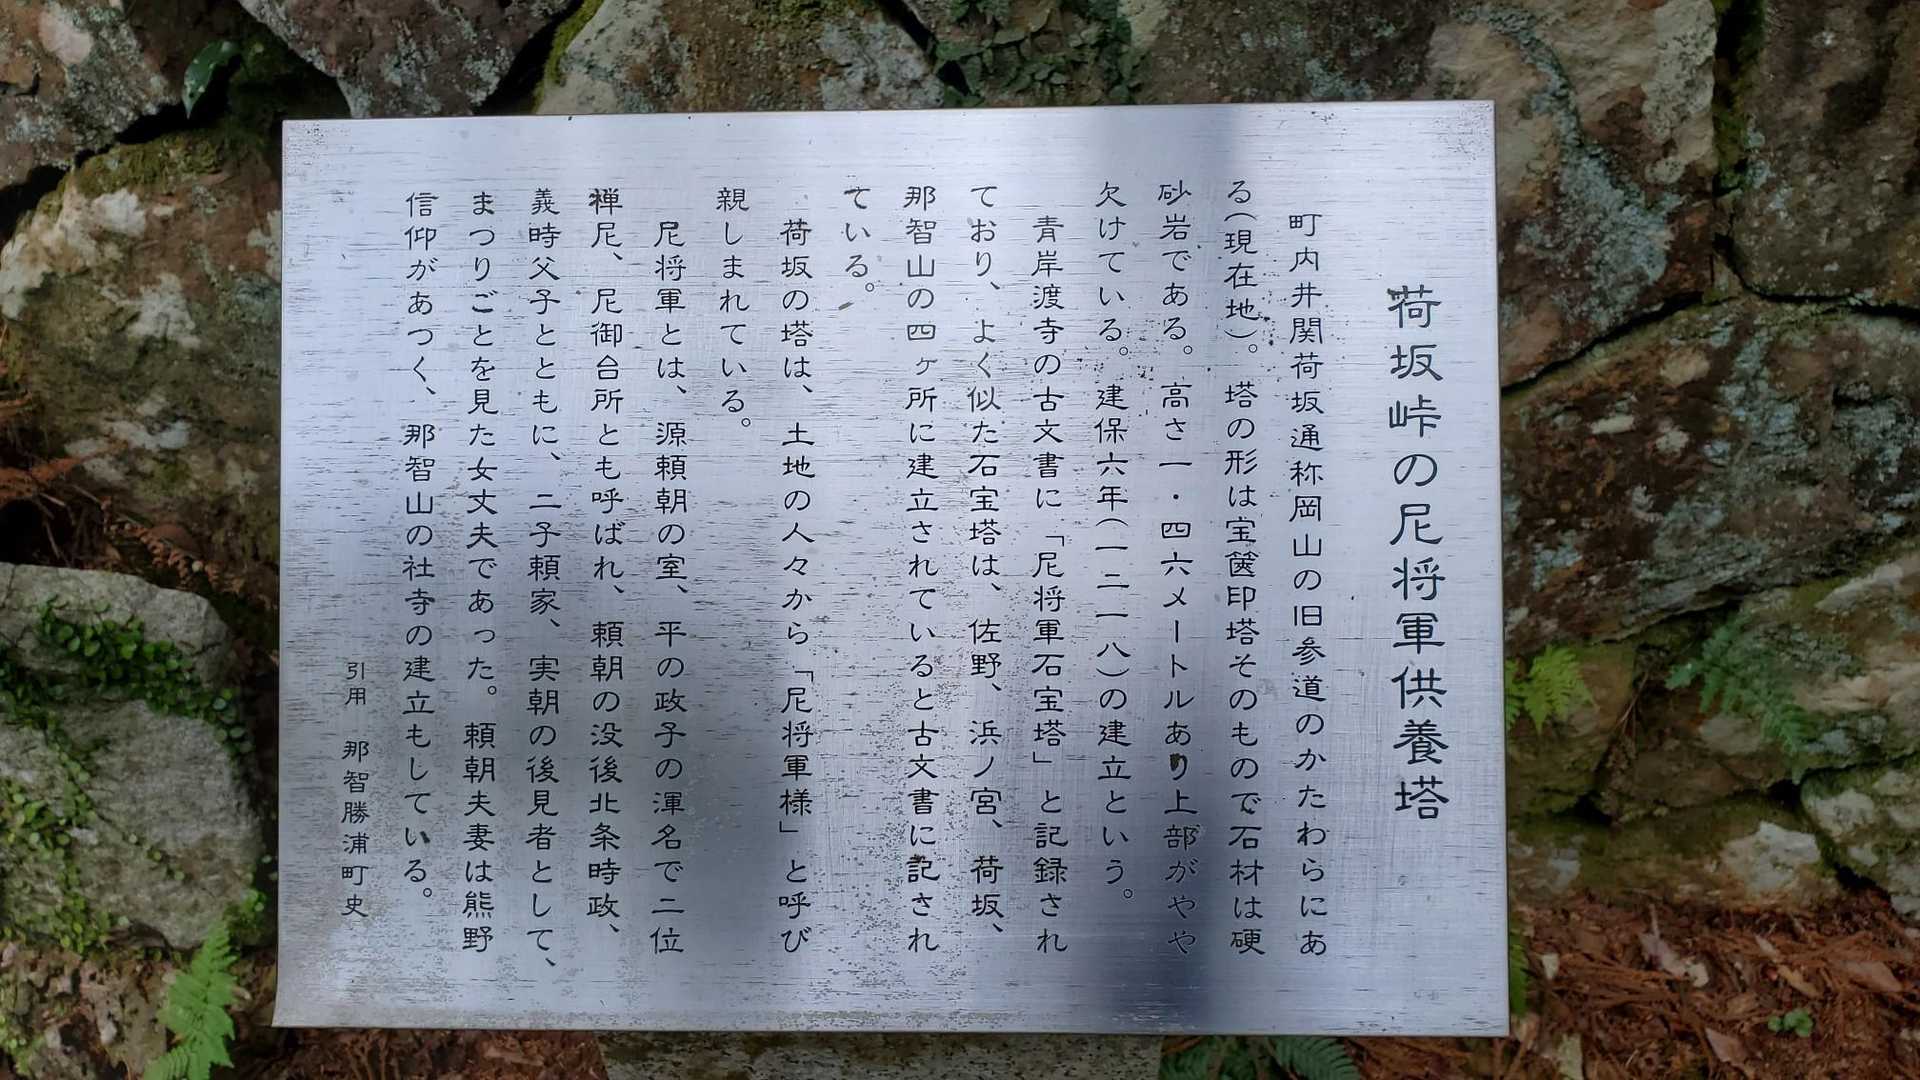 荷坂峠の尼将軍供養塔
町内井関荷坂通称岡山の旧参道のかたわらにあ
る(現在地)。塔の形は宝篋印塔そのもので石材は硬
砂岩である。高さ一・四六メートルあり上部がやや
欠けている。建保六年(一二一八)の建立という。
青岸渡寺の古文書に「尼将軍石宝塔」と記録され
ており、よく似た石宝塔は、佐野、浜ノ宮、荷坂、
那智山の四ヶ所に建立されていると古文書に記され
ている。
荷坂の塔は、土地の人々から「尼将軍様」と呼び
親しまれている。
尼将軍とは、源頼朝の室、平の政子の渾名で二位
禅尼、尼御台所とも呼ばれ、頼朝の没後北条時政、
義時父子とともに、二子頼家、実朝の後見者として、
まつりごとを見た女丈夫であった。頼朝夫妻は熊野
信仰があつく、那智山の社寺の建立もしている。
引用 那智勝浦町史